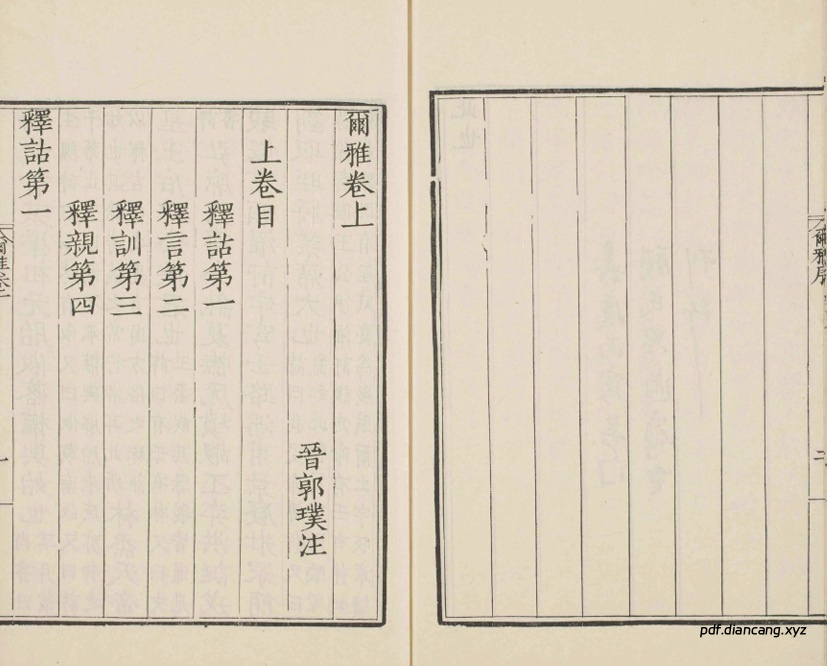 爾雅序
二
爾雅卷上
晉郭璞注
上卷目
釋詁第一
釋言第二
釋訓第三
釋親第四
釋詁第一
pdf.diancang.xyz